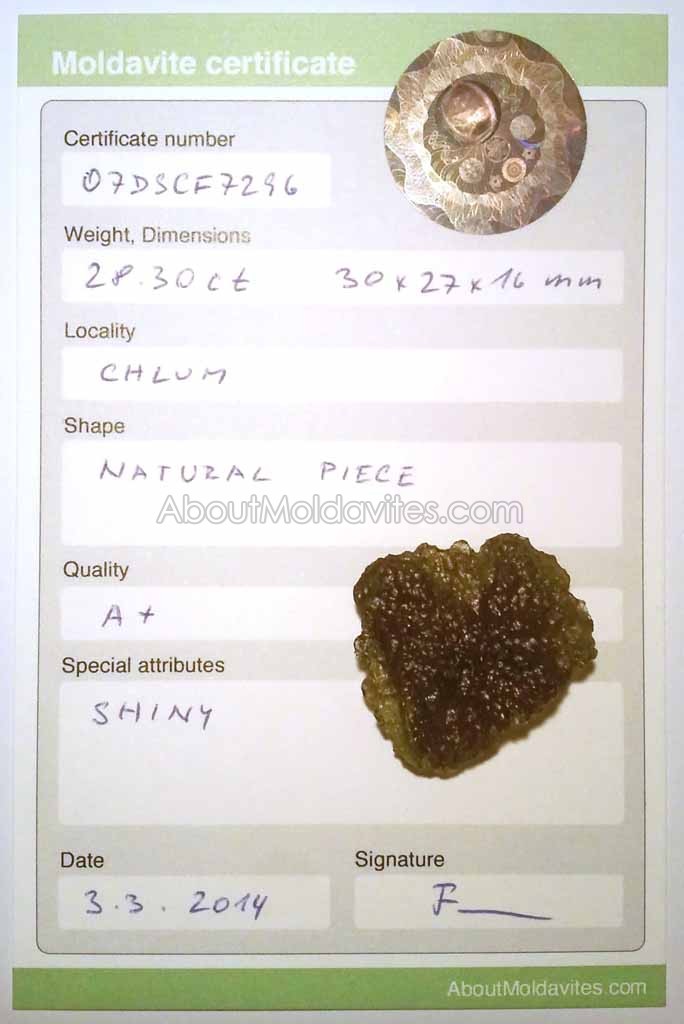 Moldavite certificate
Certificate number
07DSCF7296
Weight, Dimensions
28.30ct 30x27x16 mm
Locality
CHLUM
Shape
NATURAL PIECE
AboutMoldavites.com
Quality
A+
Special attributes
SHINY
Date Signature
3.3.2014
AboutMoldavites.com